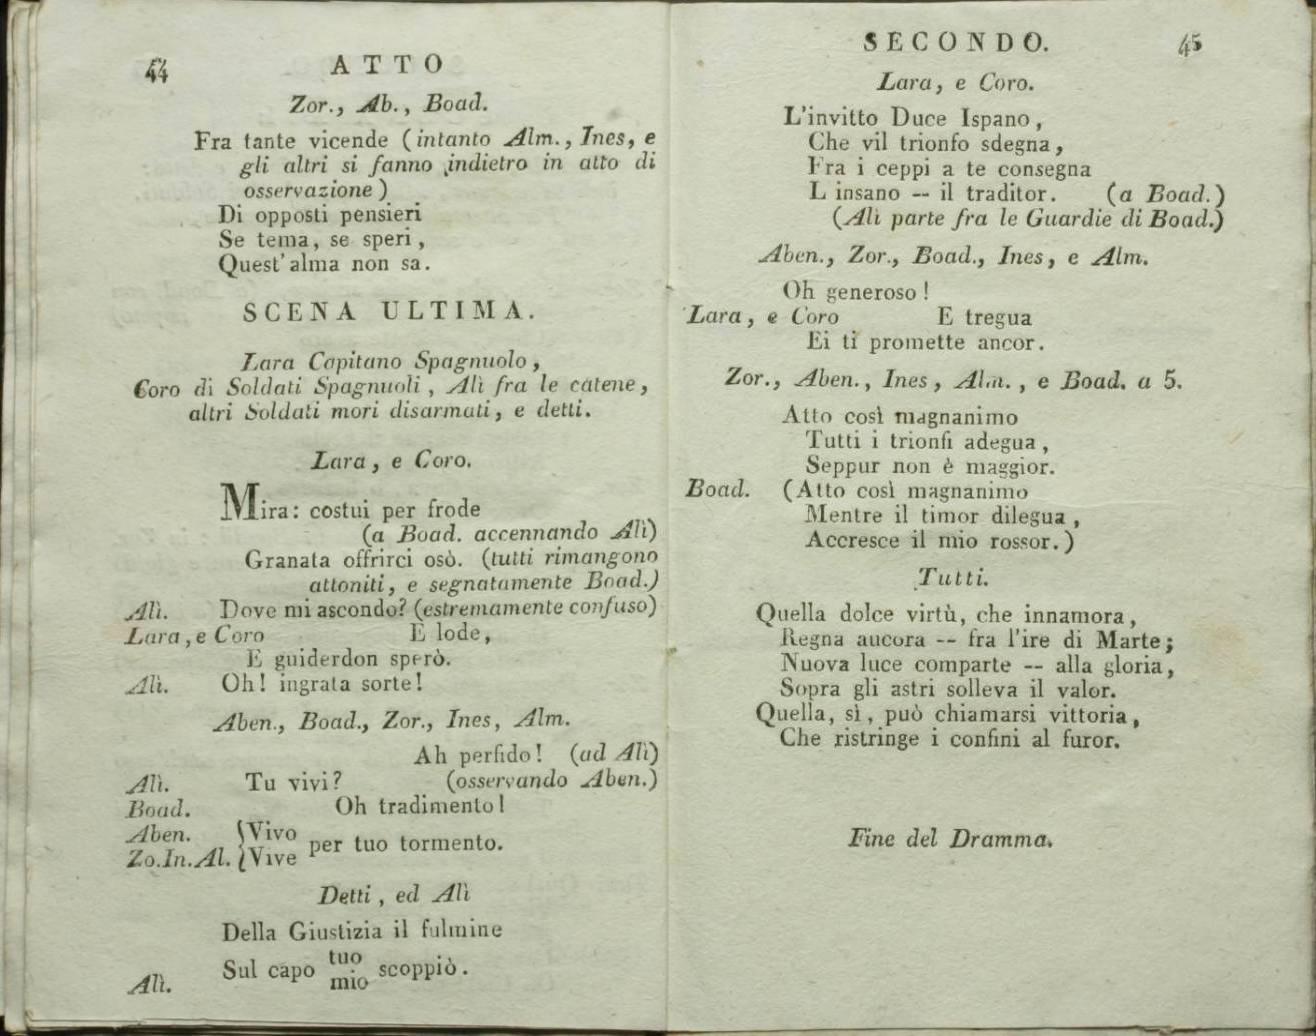 44 ATTO
Zor., Ab., Boad.
Fra tante vicende (intanto Alm., Ines, e
gli altri si fanno indietro in atto di
osservazione)
Di opposti pensieri
Se tema, se speri,
Quest'alma non sa.
SCENA ULTIMA.
Lara Capitano Spagnuolo,
Coro di Soldati Spagnuoli, Alì fra le catene,
altri Soldati mori disarmati, e detti.
Lara, e Coro.
Mira: costui per frode
(a Boad. accennando Alì)
Granata offrirci osò. (tutti rimangono
attoniti, e segnatamente Boad.)
Alì. Dove mi ascondo? (estremamente confuso)
Lara, e Coro E lode,
E guiderdon sperò.
Alì. Oh! ingrata sorte!
Aben., Boad., Zor., Ines, Alm.
Ah perfido! (ad Alì)
Alì. Tu vivi? (osservando Aben.)
Boad. Oh tradimento!
Aben. Vivo
Zo.In.Al. Vive per tuo tormento.
Detti, ed Alì
Della Giustizia il fulmine
Sul capo tuo scoppiò.
Alì. mio
SECONDO. 45
Lara, e Coro.
L'invitto Duce Ispano,
Che vil trionfo sdegna,
Fra i ceppi a te consegna
L insano -- il traditor. (a Boad.)
(Alì parte fra le Guardie di Boad.)
Aben., Zor., Boad., Ines, e Alm.
Oh generoso!
Lara, e Coro E tregua
Ei ti promette ancor.
Zor., Aben., Ines, Alm., e Boad. a 5.
Atto così magnanimo
Tutti i trionfi adegua,
Seppur non è maggior.
Boad. (Atto così magnanimo
Mentre il timor dilegua,
Accresce il mio rossor.)
Tutti.
Quella dolce virtù, che innamora,
Regna ancora -- fra l'ire di Marte;
Nuova luce comparte -- alla gloria,
Sopra gli astri solleva il valor.
Quella, sì, può chiamarsi vittoria,
Che ristringe i confini al furor.
Fine del Dramma.